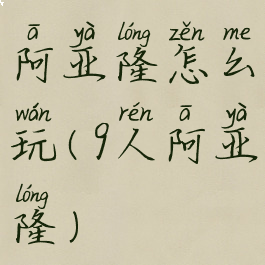 ā yà lóng zěn me
阿亚隆怎么
wán rén ā yà
玩(9人阿亚
lóng
隆)